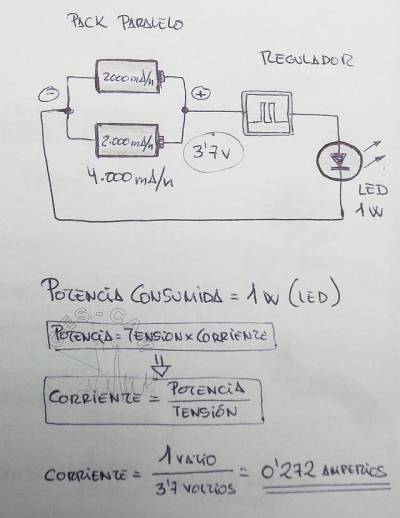 PACK PARALELO
REGULADOR
2000mA/h
2.000mA/h
4.000mA/h
3'7V
LED
1W
POTENCIA CONSUMIDA = 1W (LED)
POTENCIA = TENSION × CORRIENTE
CORRIENTE = POTENCIA / TENSIÓN
CORRIENTE = 1 VATIO / 3'7 VOLTIOS = 0'272 AMPERIOS